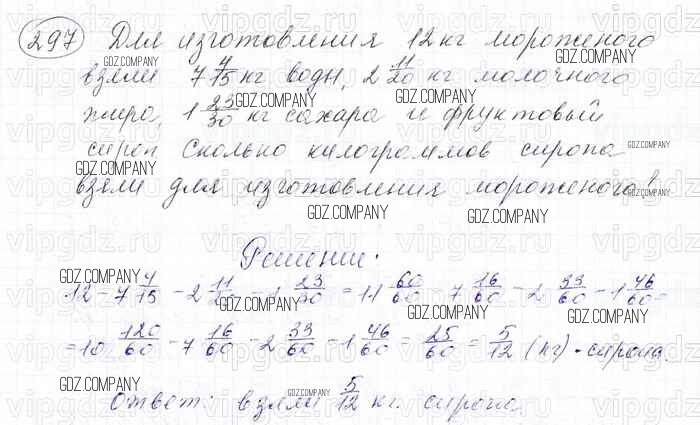 297 Для изготовления 12 кг мороженого
взяли 7 4/15 кг воды, 2 11/20 кг молочного
жира, 1 23/30 кг сахара и фруктовый
сироп. Сколько килограммов сиропа
взяли для изготовления мороженого?
Решение:
12 - 7 4/15 - 2 11/20 - 1 23/30 = 11 60/60 - 7 16/60 - 2 33/60 - 1 46/60 =
= 10 120/60 - 7 16/60 - 2 33/60 = 1 46/60 = 25/60 = 5/12 (кг) - сиропа.
Ответ: взяли 5/12 кг. сиропа.
GDZ.COMPANY
vipgdz.ru